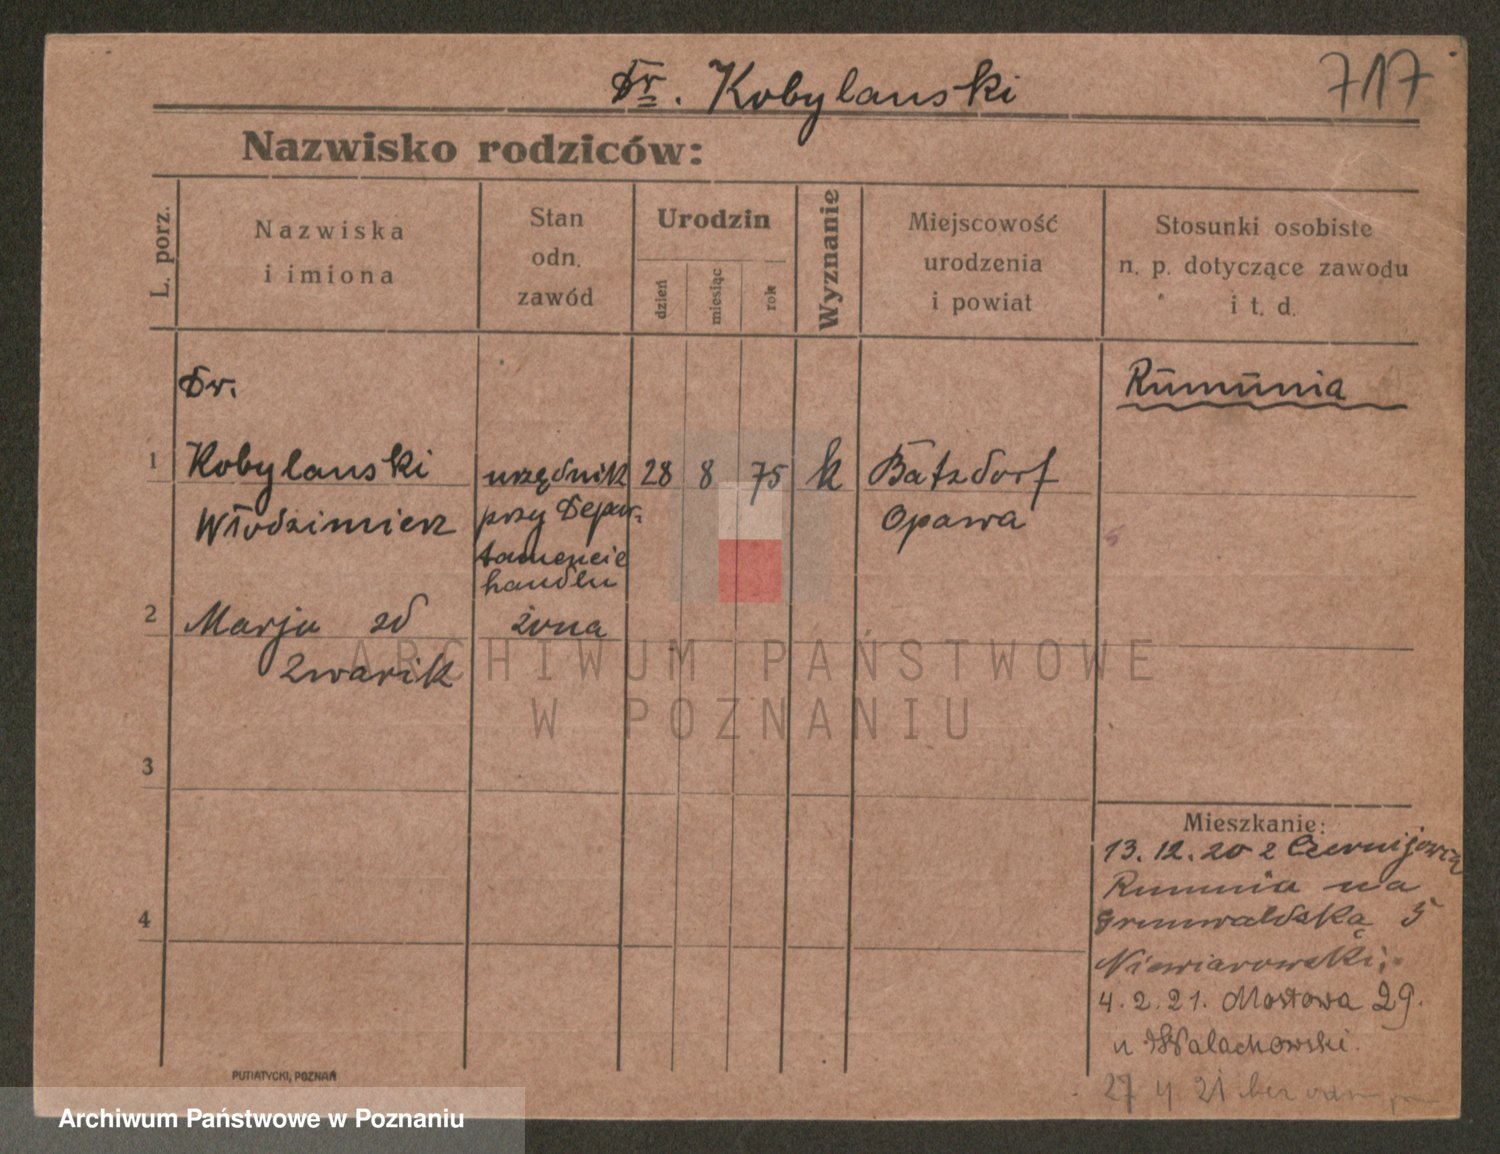 Dr. Kobylanski
717
Nazwisko rodziców:
L. porz.
Nazwiska
i imiona
Stan
odn.
zawód
Urodzin
dzień
miesiąc
rok
Wyznanie
Miejscowość
urodzenia
i powiat
Stosunki osobiste
n. p. dotyczące zawodu
i t. d.
Dr.
Rumunia
1 Kobylanski urzędnik 28 8 75 k Batzdorf
Włodzimierz przy Depar- Opawa
tamencie
handlu
2 Marja zd żona
Zwarik
3
4
Mieszkanie:
13.12.20 z Czernijowca
Rumunia na
Grunwaldską 5
Niewiarowski;
4.2.21. Mostowa 29.
u Walachowski.
27 4 21 bez
PUTIATYCKI, POZNAŃ
ARCHIWUM PAŃSTWOWE
W POZNANIU
Archiwum Państwowe w Poznaniu